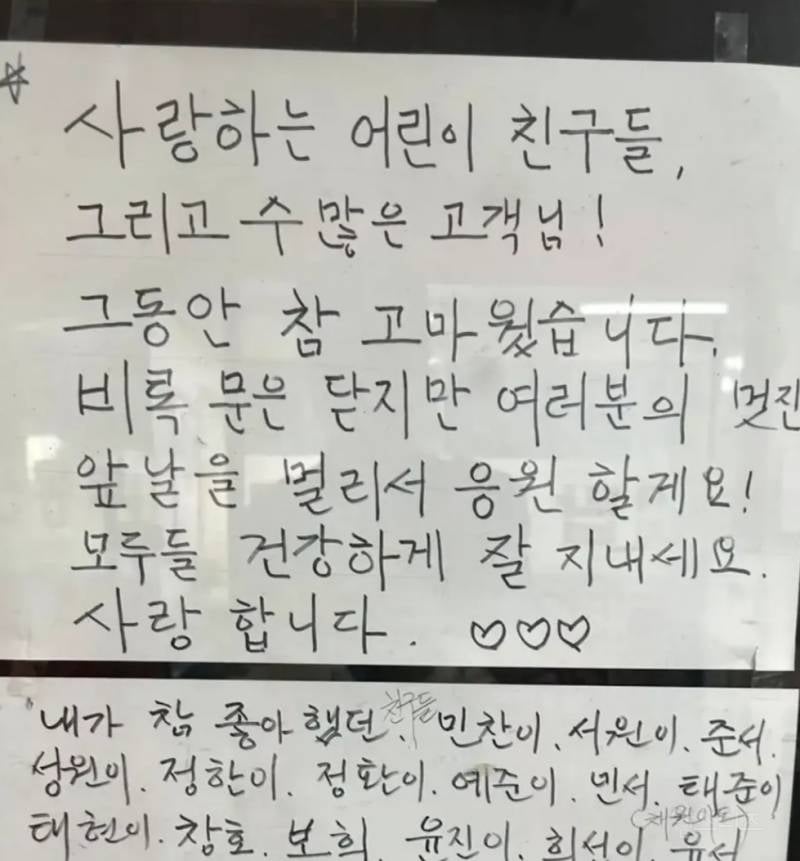 사랑하는 어린이 친구들,
그리고 수많은 고객님!
그동안 참 고마웠습니다.
비록 문은 닫지만 여러분의 멋진
앞날을 멀리서 응원 할게요!
모두들 건강하게 잘 지내세요.
사랑 합니다. ♡♡♡
내가 참 좋아했던 친구들 민찬이. 서원이. 준서.
성원이. 정한이. 정환이. 예준이. 민서. 태준이
(채원이도)
태현이. 창호. 보희. 유진이. 희선이. 윤서